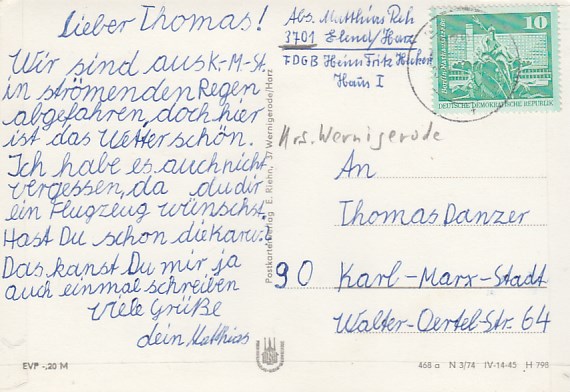 lieber Thomas!
Wir sind aus K.-M.-St.
in strömenden Regen
abgefahren, doch hier
ist das Wetter schön.
Ich habe es auch nicht
vergessen, da du dir
ein Flugzeug wünschst.
Hast Du schon die Karu?
Das kanst Du mir ja
auch einmal schreiben
Viele Grüße
dein Matthias
EVP -,20 M
Postkartenverlag E. Riehn, 37 Wernigerode/Harz
Abs. Matthias
3701 Elend/Harz
FDGB Heim Fritz Heckert
Haus I
10
Berlin
DEUTSCHE DEMOKRATISCHE REPUBLIK
Krs. Wernigerode
An
Thomas Danzer
90 Karl-Marx-Stadt
Walter-Oertel-Str. 64
468 a N 3/74 IV-14-45 H 798